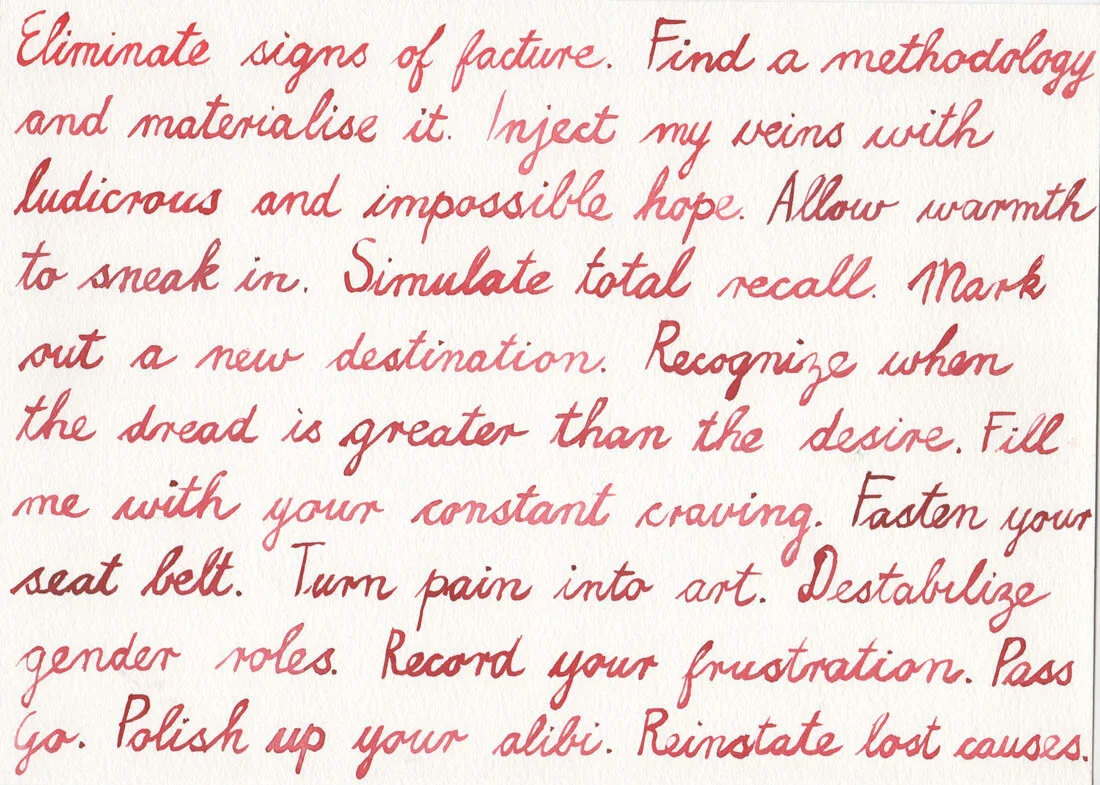 Eliminate signs of facture. Find a methodology
and materialise it. Inject my veins with
ludicrous and impossible hope. Allow warmth
to sneak in. Simulate total recall. Mark
out a new destination. Recognize when
the dread is greater than the desire. Fill
me with your constant craving. Fasten your
seat belt. Turn pain into art. Destabilize
gender roles. Record your frustration. Pass
Go. Polish up your alibi. Reinstate lost causes.